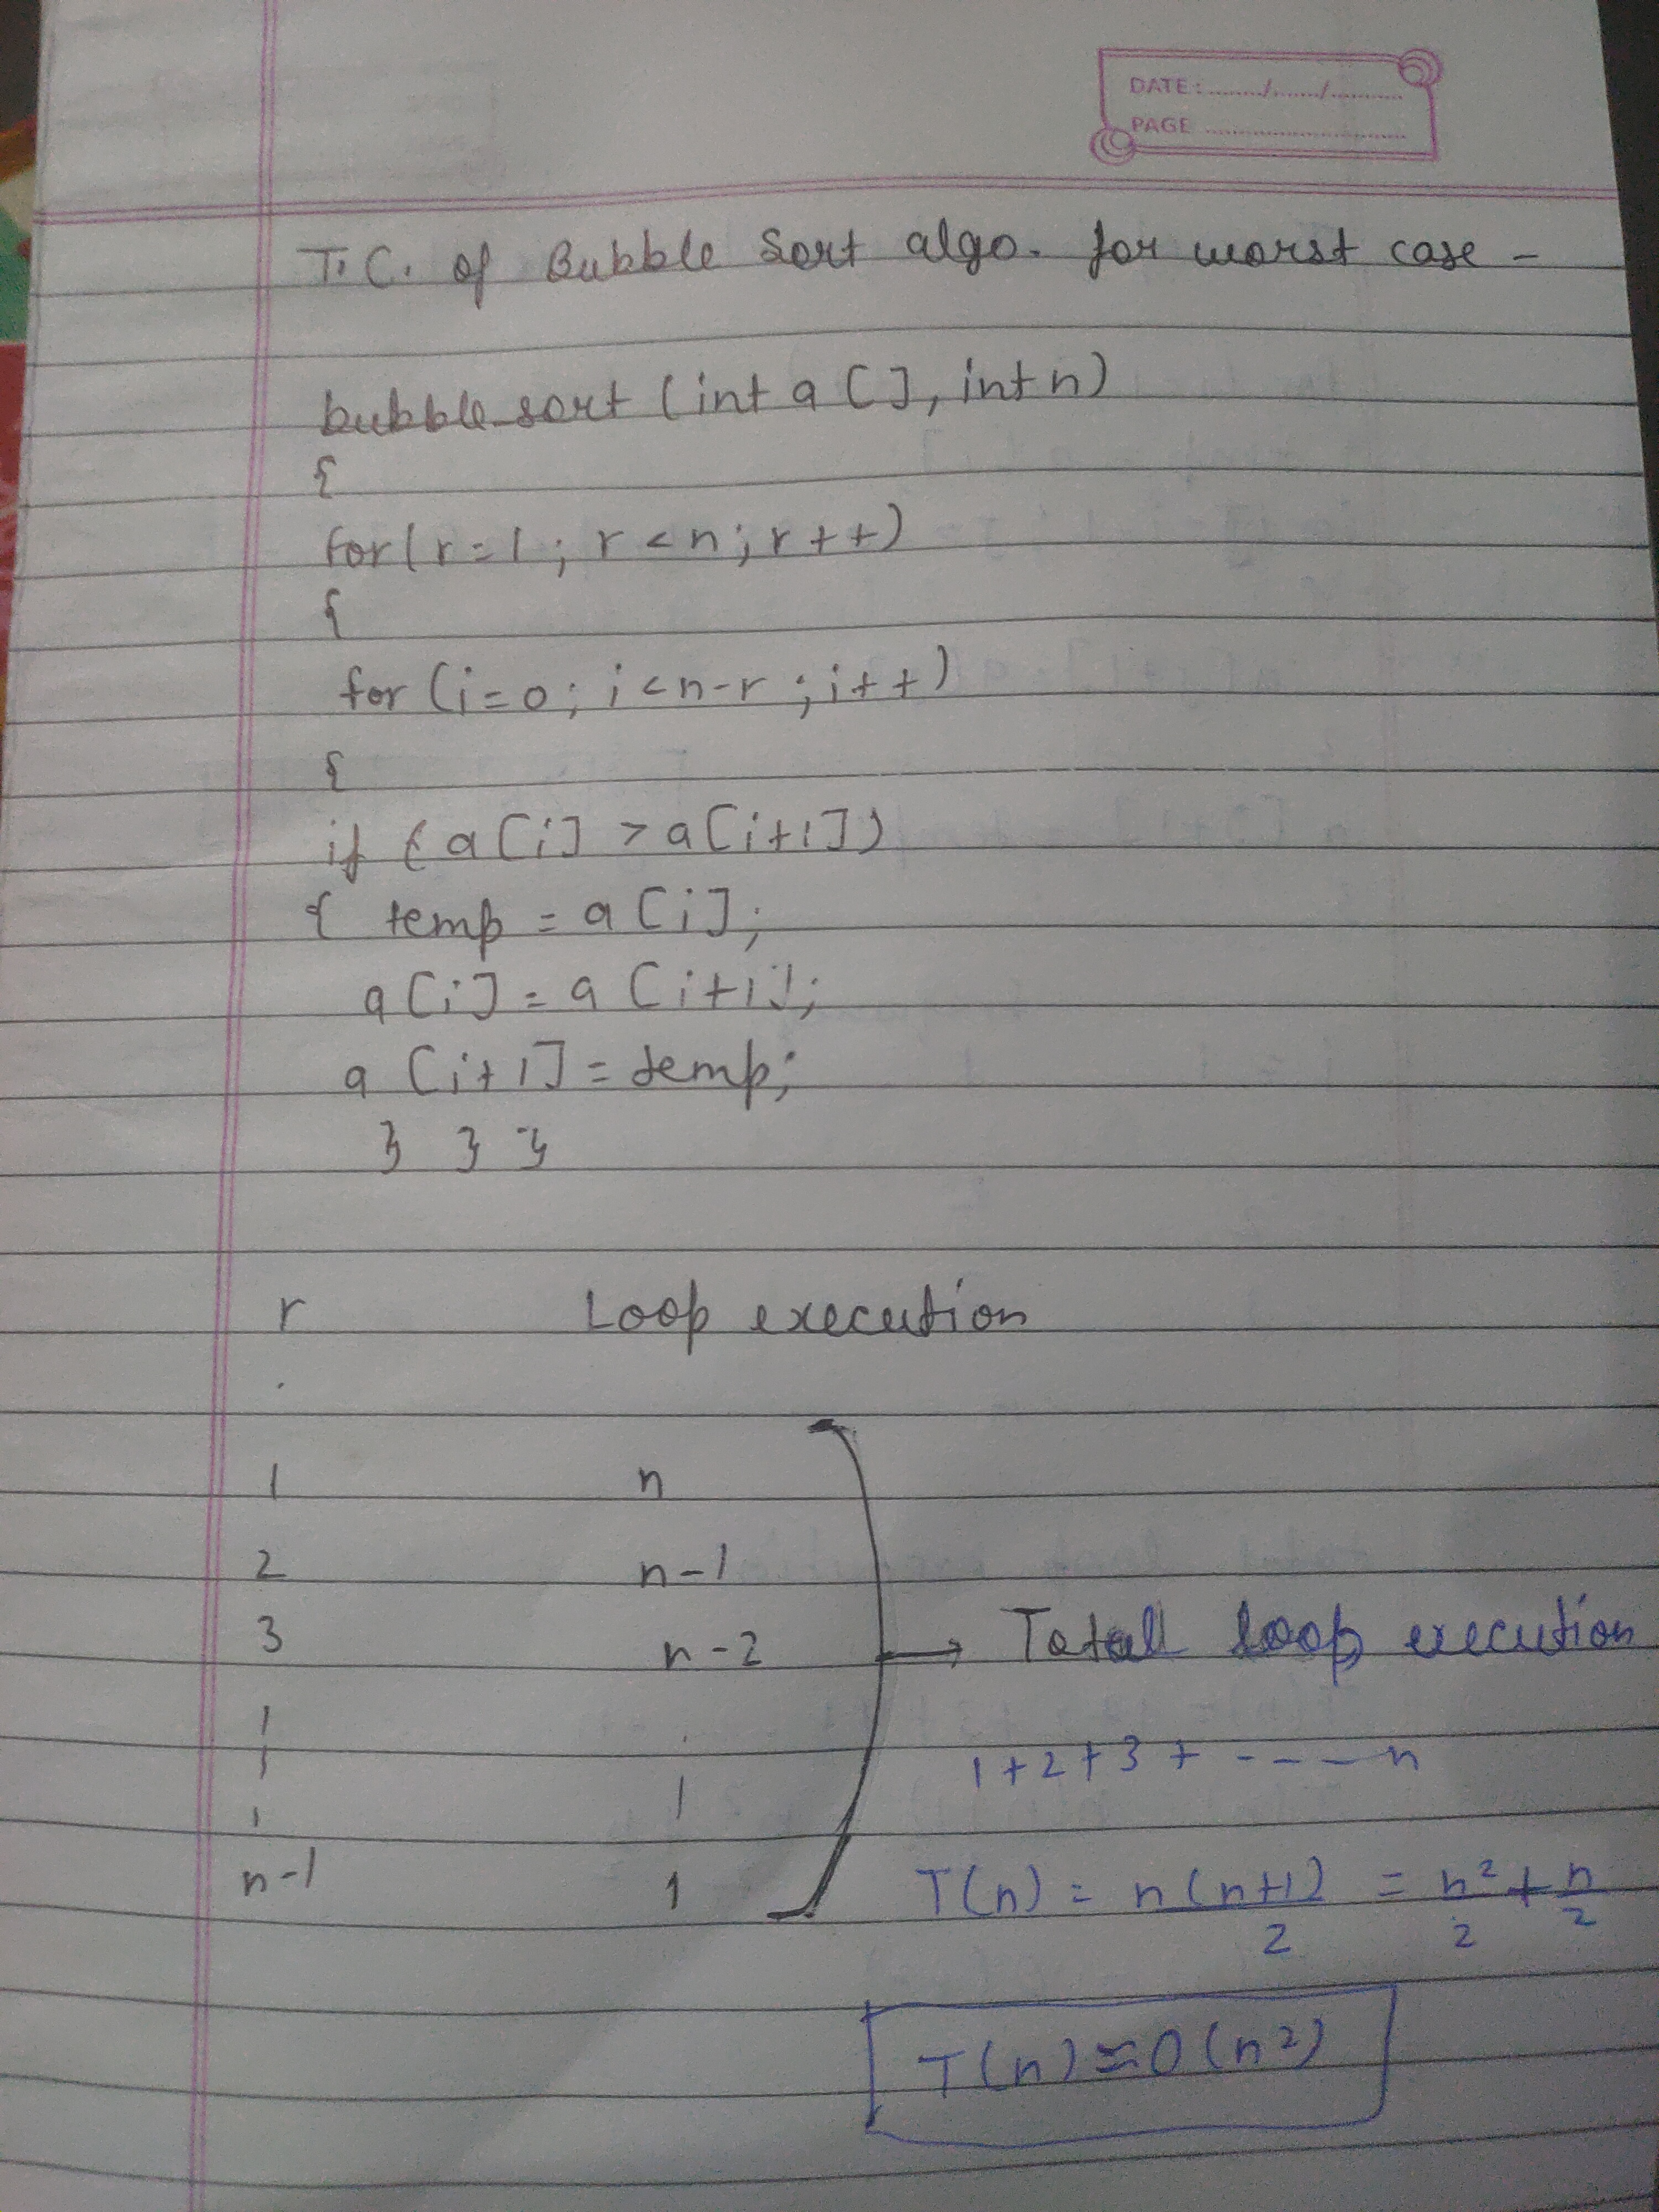 DATE : ......../......./............
PAGE ..................................
T.C. of Bubble Sort algo. for worst case -
bubble_sort (int a [], int n)
{
for (r=1 ; r < n ; r++)
{
for (i=0 ; i < n-r ; i++)
{
if (a[i] > a[i+1])
{ temp = a[i];
a[i] = a[i+1];
a[i+1] = temp;
} } }
r Loop execution
1 n
2 n-1
3 n-2 → Totall loop execution
1+2+3+ ---- n
n-1 1 T(n) = n(n+1)/2 = n²/2 + n/2
T(n) ≈ O(n²)